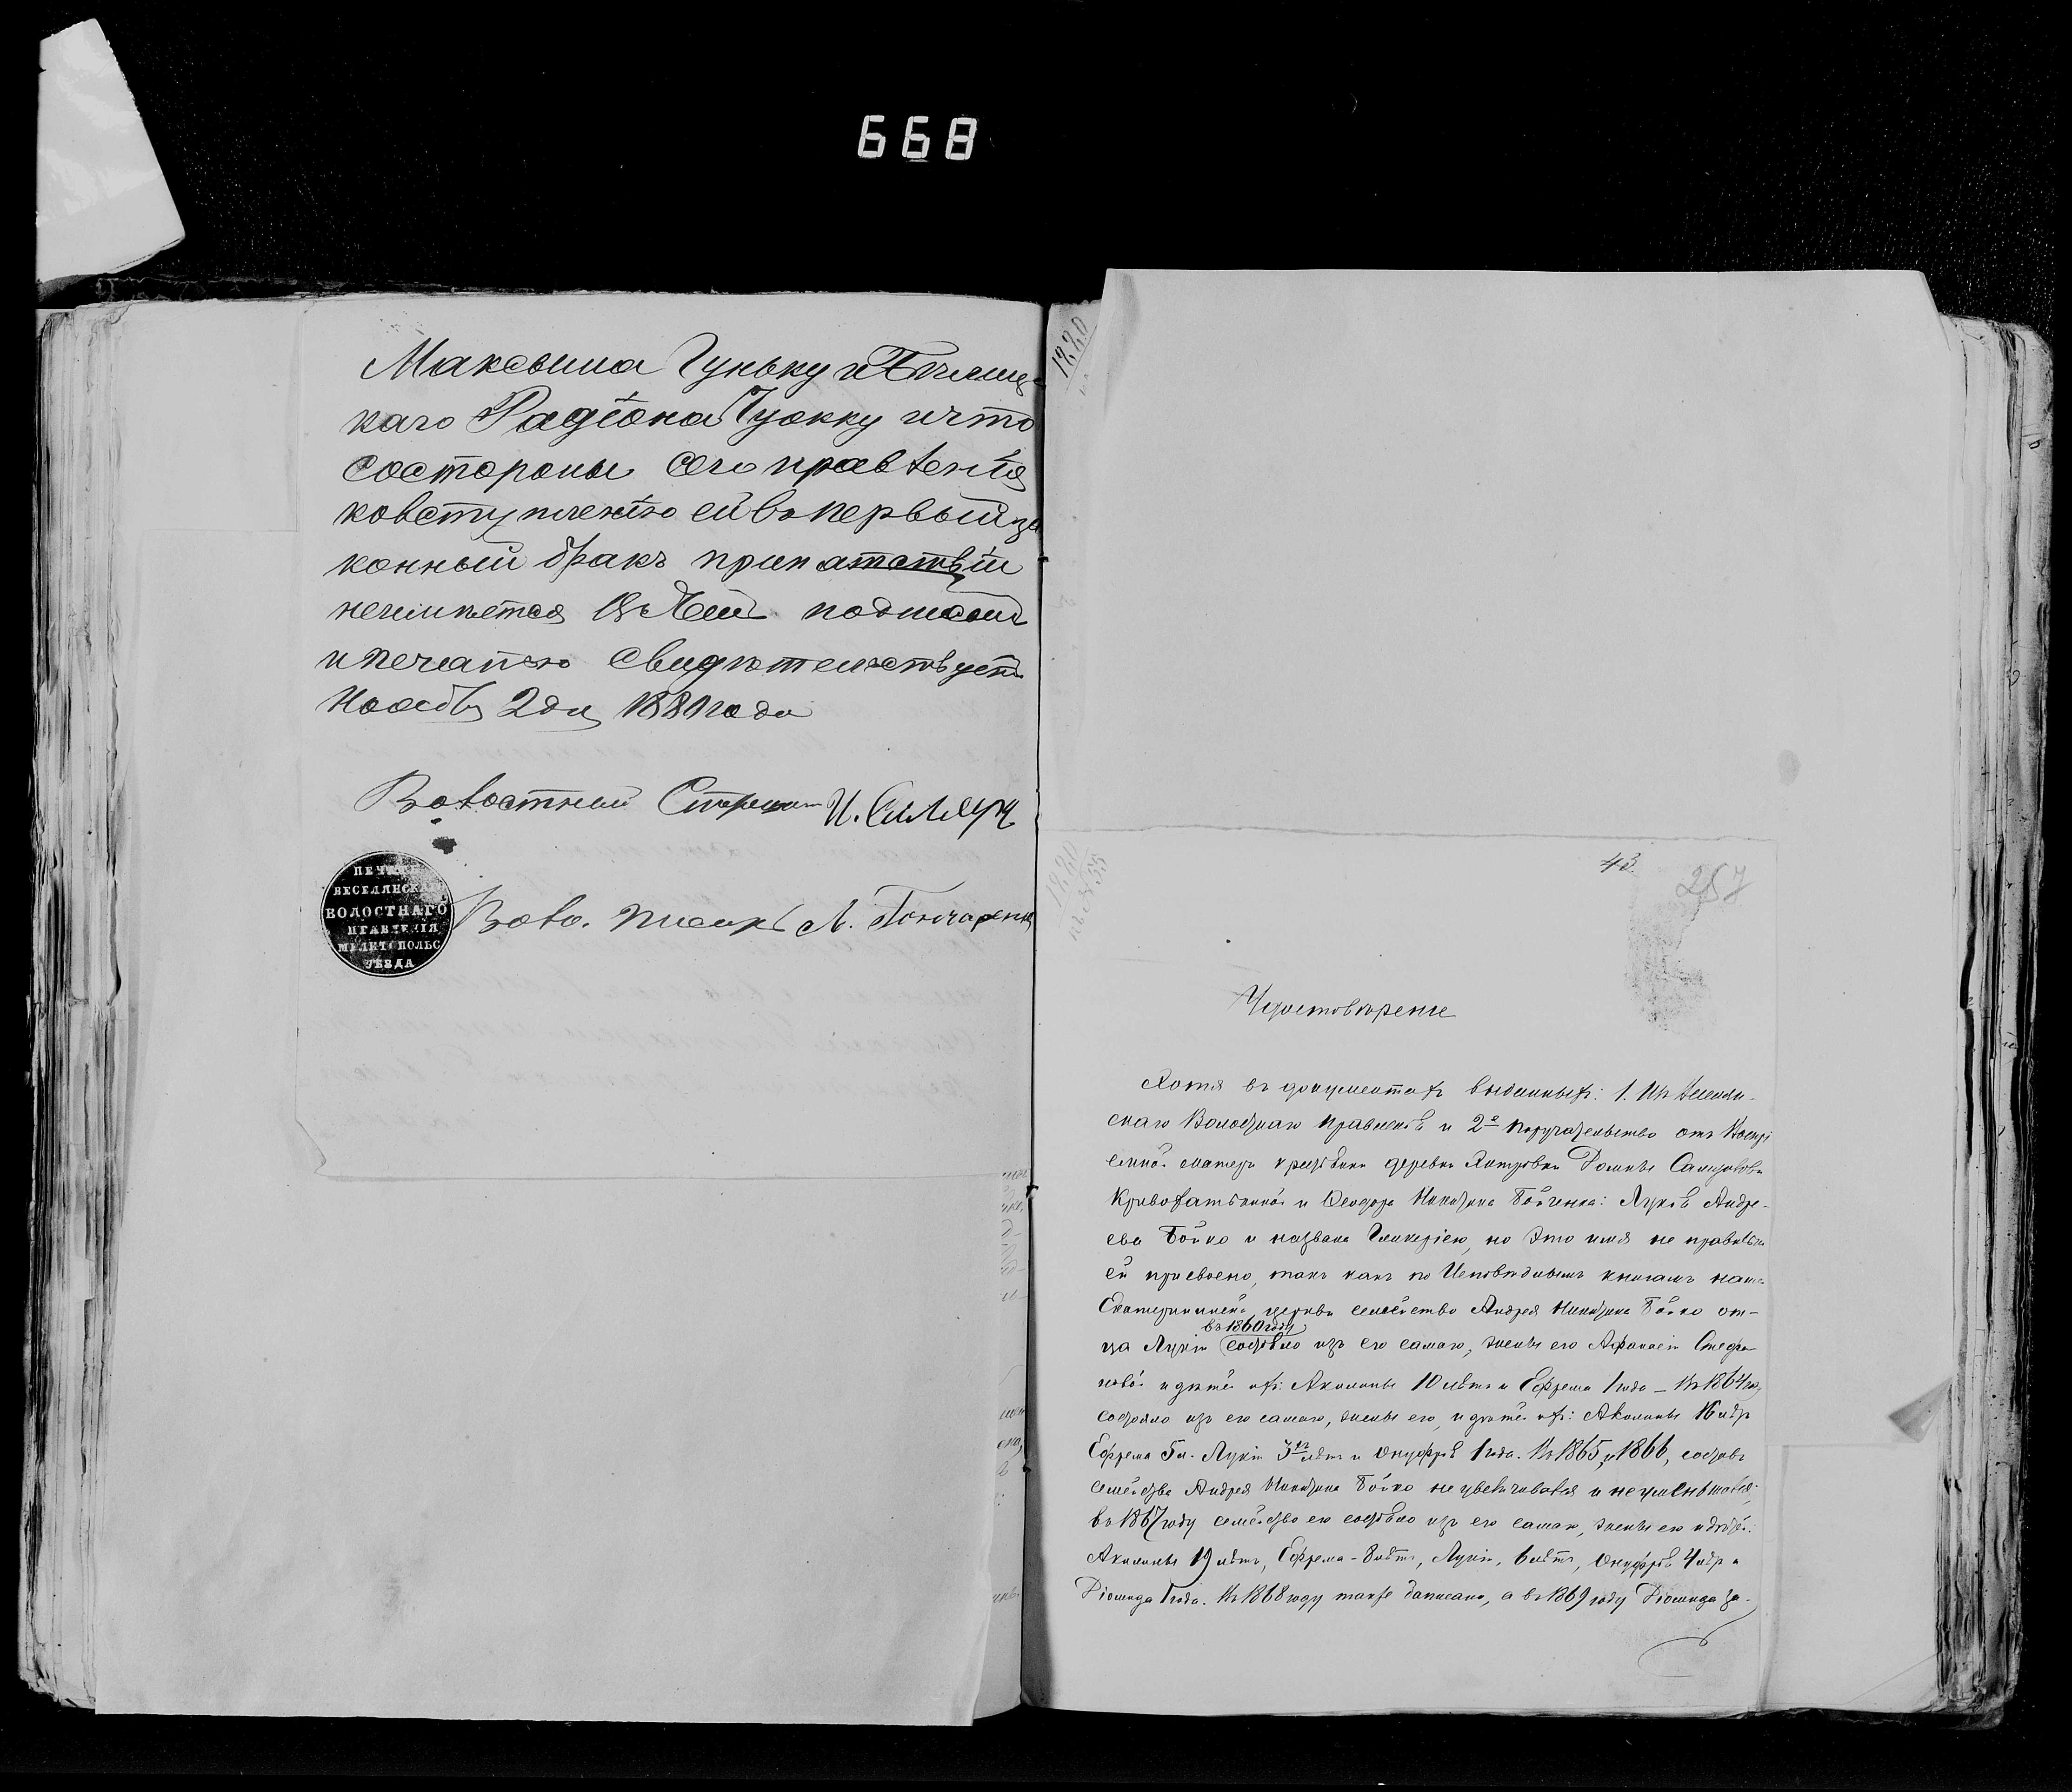 668
Максыма Гуньку и
каго Радіона Гуокку ичто
состороны сего правленія
ковступленію ей въ первый за
конный бракъ припатствій
неимѣется въ чем подписом
и печатью свидѣтельствует
Ноября 2 дня 1881 года
Волостный Старшина И.
ПЕЧАТЬ
ВЕСЕЛЯНСКАГ
ВОЛОСТНАГО
ПРАВЛЕНІЯ
МЕЛИТОПОЛЬС
УѢЗДА
Воло. писарь Л. Гончаренко
1220
1220
43
257
Удостовѣреніе
Хотя въ документахъ выданныхъ: 1. Изъ
скаго Волостнаго Правленія и 2е Поручательство отъ
матери крестьянки деревни Домны
и Ѳеодора Никитина Бойченка: Лукія Андре-
ева Бойко и названа Гликеріею, но это имя не правильно
ей присвоено, такъ какъ по Исповѣднымъ книгамъ наше
Екатерининско церкви семейство Андрея Никитина Бойко от-
въ 1860 году
ца Лукіи состояло изъ его самаго, жены его Афанасіи Стефа
новой и дѣтей ихъ: Акилины 10 лѣтъ и Ефрема 1 года — Въ 1864 году
состояло изъ его самаго, жены его, и дѣтей ихъ: Акилины 16 лѣтъ
Ефрема 5 л. Лукіи 3хъ лѣтъ и Онуфрія 1 года. Въ 1865 и 1866, составъ
семейства Андрея Никитина Бойко не увеличивался и не уменьшался;
въ 1867 году семейство его состояло изъ его самаго, жены его и дѣтей:
Акилины 19 лѣтъ, Ефрема - 8 лѣтъ, Лукіи, 6 лѣтъ, Онуфрія 4 лѣтъ и
Діомида 1 года. Въ 1868 году также записано, а въ 1869 году Діомида за-